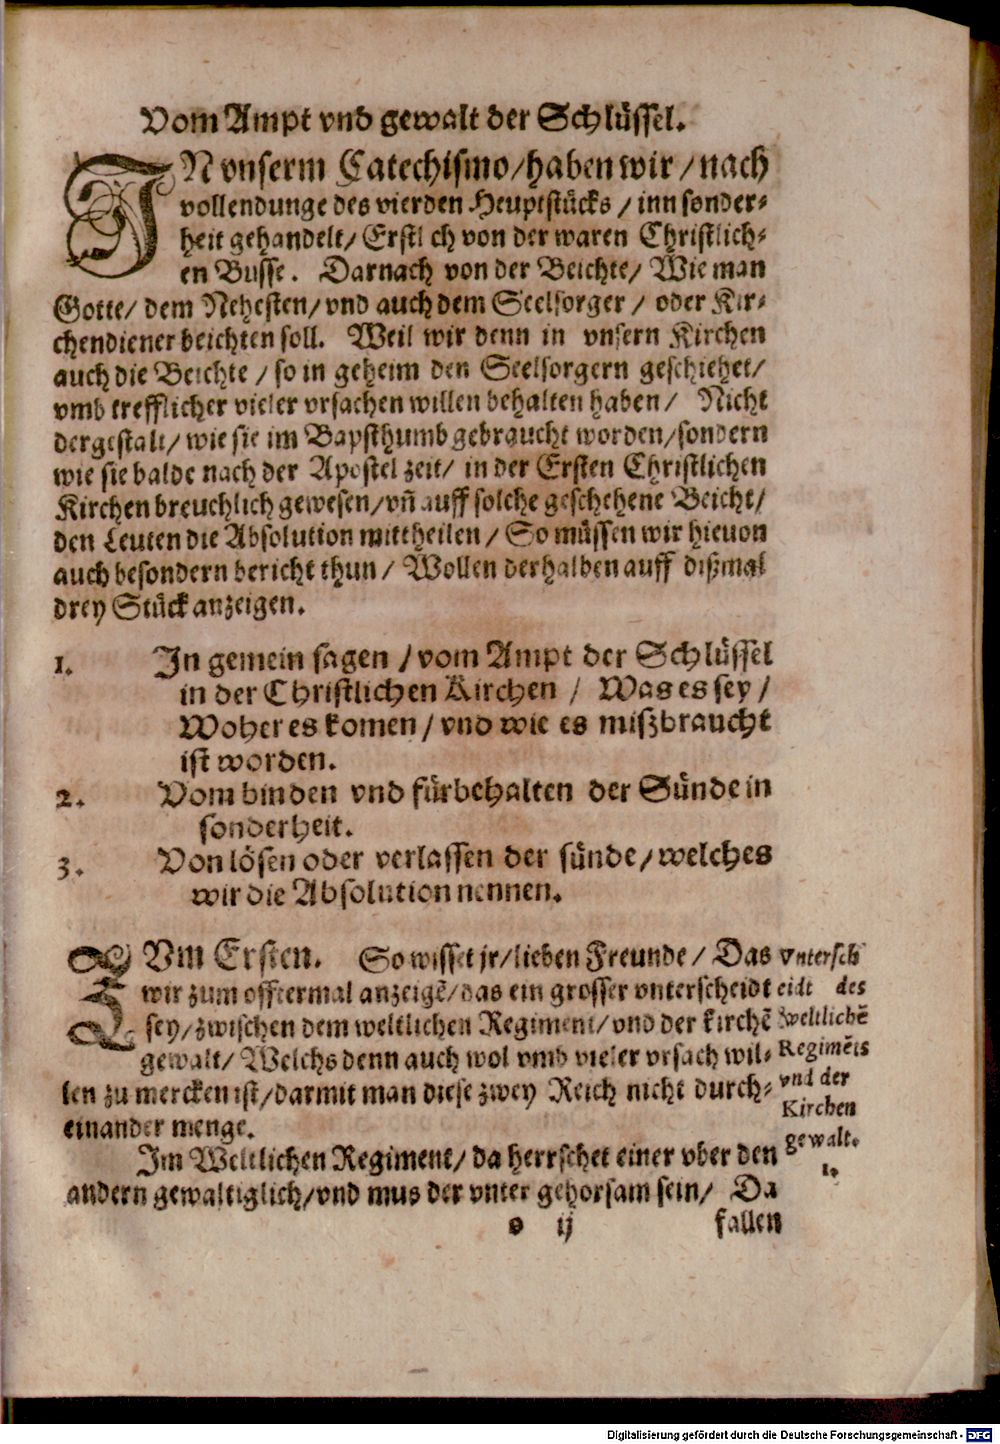 Vom Ampt vnd gewalt der Schlüssel.
IN vnserm Catechismo/haben wir/nach
vollendunge des vierden Heuptstücks/inn sonder-
heit gehandelt/Erstlich von der waren Christlich-
en Busse. Darnach von der Beichte/Wie man
Gotte/dem Nehesten/vnd auch dem Seelsorger/oder Kir-
chendiener beichten soll. Weil wir denn in vnsern Kirchen
auch die Beichte/so in geheim den Seelsorgern geschiehet/
vmb trefflicher vieler vrsachen willen behalten haben/Nicht
dergestalt/wie sie im Bapsthumb gebraucht worden/sondern
wie sie balde nach der Apostel zeit/in der Ersten Christlichen
Kirchen breuchlich gewesen/vñ auff solche geschehene Beicht/
den Leuten die Absolution mittheilen/So müssen wir hieuon
auch besondern bericht thun/Wollen derhalben auff dißmal
drey Stück anzeigen.
1. In gemein sagen/vom Ampt der Schlüssel
in der Christlichen Kirchen/Was es sey/
Woher es komen/vnd wie es mißbraucht
ist worden.
2. Vom binden vnd fürbehalten der Sünde in
sonderheit.
3. Von lösen oder verlassen der sünde/welches
wir die Absolution nennen.
ZVm Ersten. So wisset jr/lieben Freunde/Das
wir zum offtermal anzeigẽ/das ein grosser vnterscheidt
sey/zwischen dem weltlichen Regiment/vnd der kirchẽ
gewalt/Welchs denn auch wol vmb vieler vrsach wil-
len zu mercken ist/darmit man diese zwey Reich nicht durch-
einander menge.
Im Weltlichen Regiment/da herrschet einer vber den
andern gewaltiglich/vnd mus der vnter gehorsam sein/Da
o ij
fallen
Vntersch
eidt des
weltlichẽ
Regimẽts
vnd der
Kirchen
gewalt.
1.
Digitalisierung gefördert durch die Deutsche Forschungsgemeinschaft - DFG